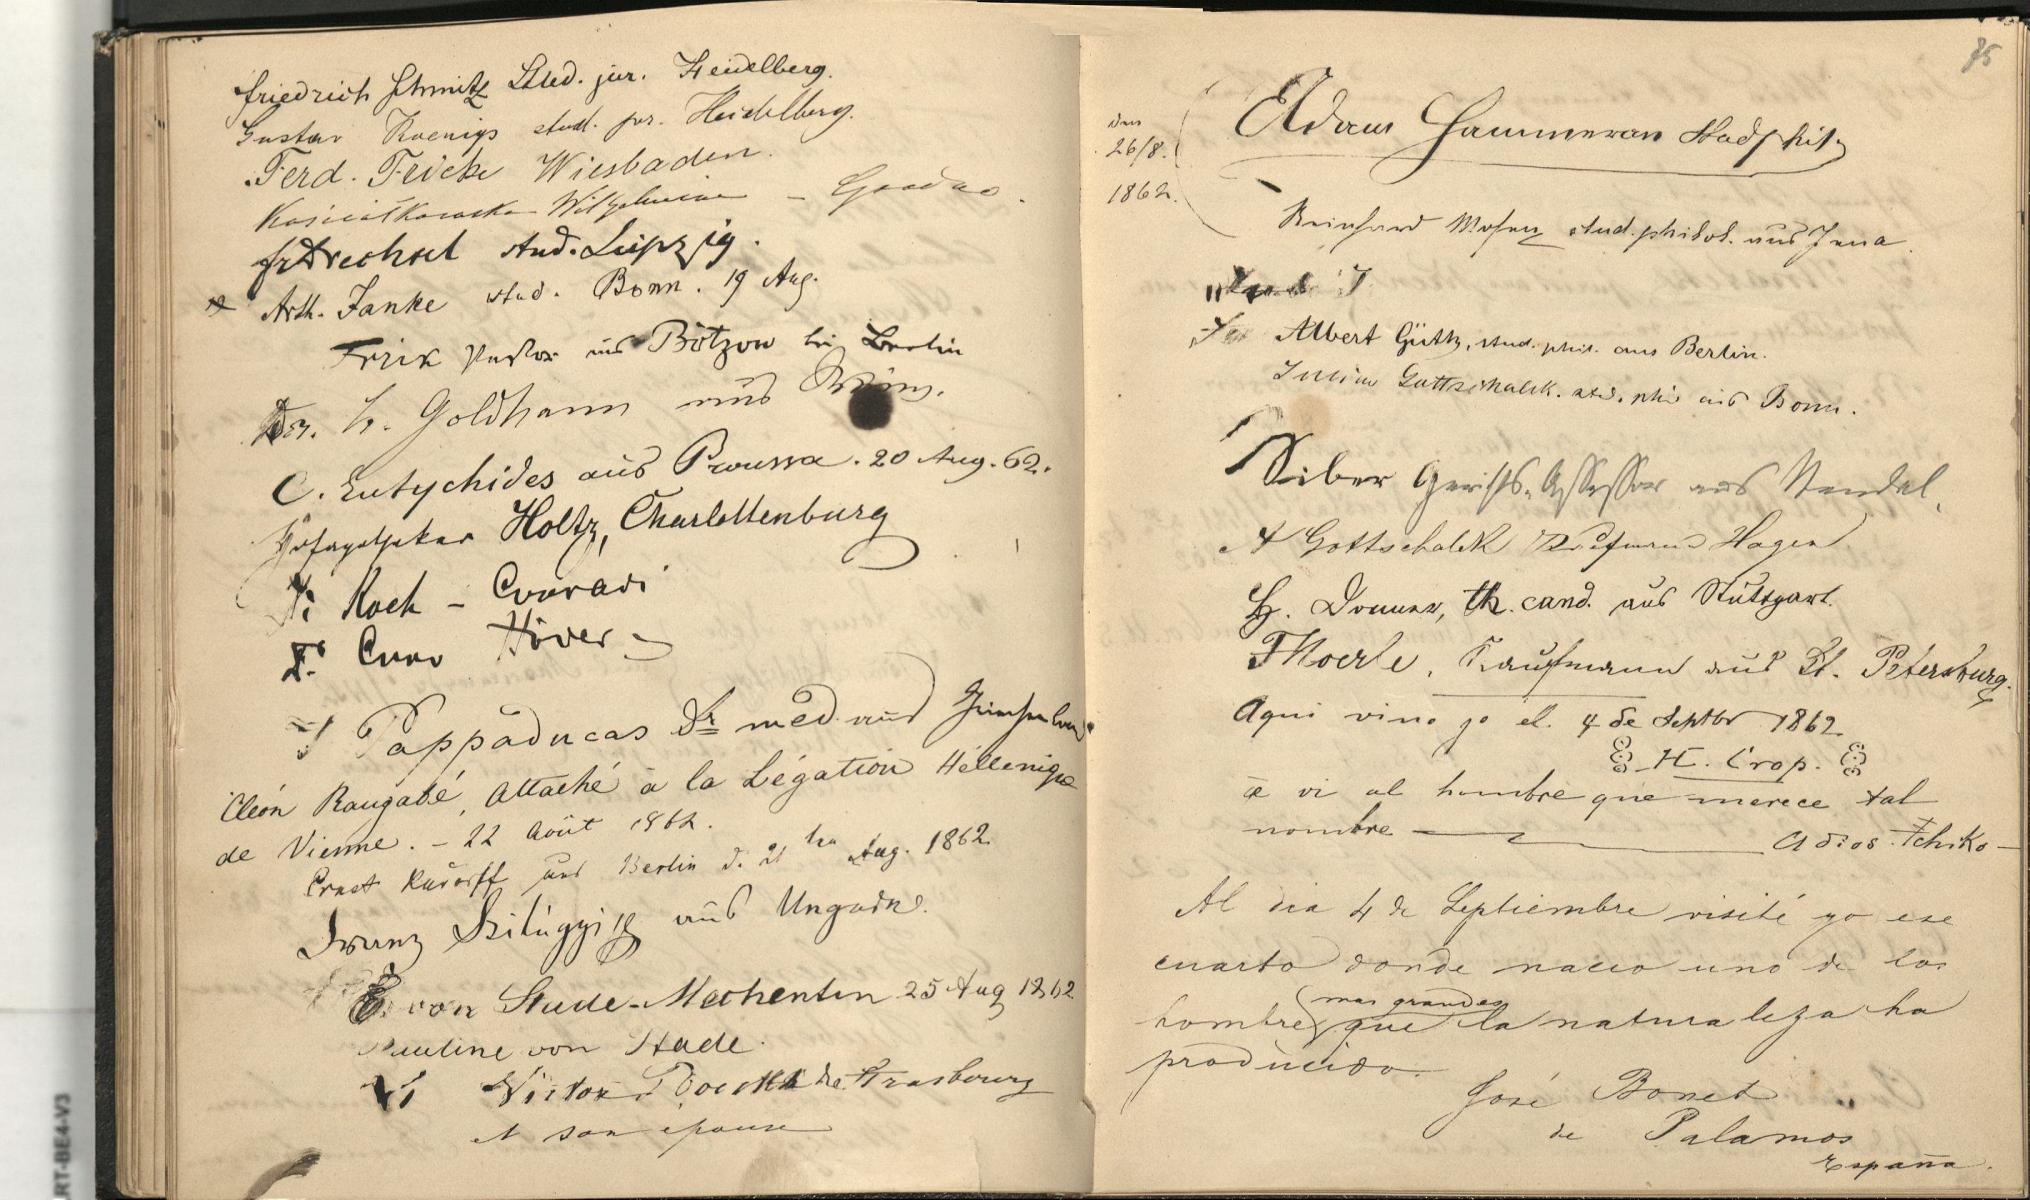 Friedrich Schmitz Stud. jur. Heidelberg.
Gustav Koenigs stud. jur. Heidelberg.
Ferd. Fricke Wiesbaden.
Wilhelmine
Drechsel stud. Leipzig.
Arth. Janke stud. Bonn. 19 Aug.
Frick Pastor aus Bötzow bei Berlin
Dr. Goldhann aus Brünn.
C. Eutychides aus Proussa. 20 Aug. 62.
Hofapotheker Holtz, Charlottenburg
Koch - Conradi
Höver
Pappaducas Dr med. aus Griechenland.
Cléon Rangabé, Attaché à la Légation Hellenique
de Vienne. - 22 Août 1862.
Ernst Rudorff aus Berlin d. 21 ten Aug. 1862.
Franz Szilágyi aus Ungarn.
E. von Stade-Mechentin 25 Aug 1862
Pauline von Stade.
Victor de Strasbourg
et son épouse
75
den
26/8.
1862.
Adam Hammeran stud phil.
Reinhard Mosen stud. philol. aus Jena.
Albert stud. phil. aus Berlin.
Gottschalck. stud. phil aus Bonn.
Siber Gerichts-Assessor aus Stendal.
A Gottschalck Kaufmann Hagen
H. th. cand. aus Stuttgart.
Kaufmann aus St. Petersburg.
Aqui vino yo el. 4 de Septbr 1862.
H. Crop.
vi al hombre que merece tal
nombre Adios Tchiko
Al dia 4 de Septiembre visité yo ese
cuarto donde nacio uno de los
hombres mas grandes que la naturaleza ha
producido.
José Bonet
de Palamos
España.
RT-BE4-V3